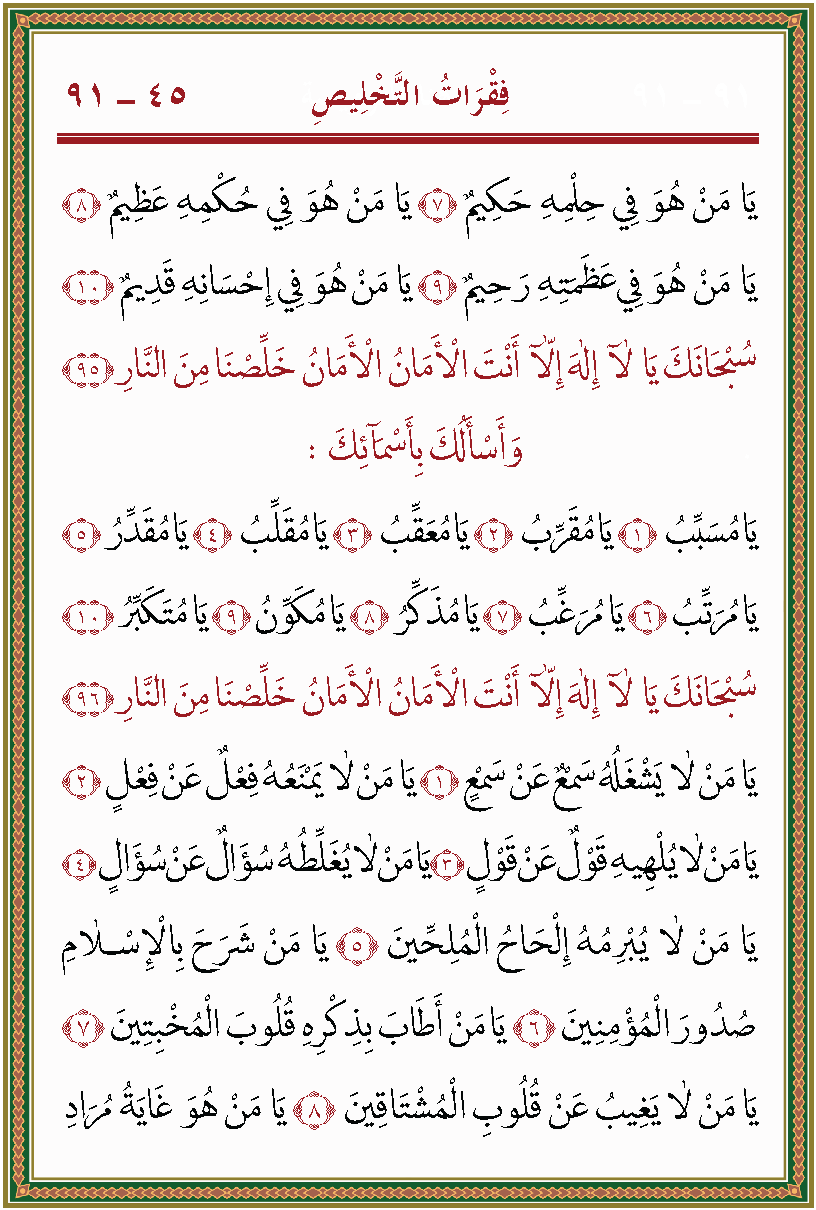 فِقْرَاتُ التَّخْلِيصِ ٤٥ – ٩١
يَا مَنْ هُوَ فِي حِلْمِهِ حَكِيمٌ ﴿٧﴾ يَا مَنْ هُوَ فِي حُكْمِهِ عَظِيمٌ ﴿٨﴾
يَا مَنْ هُوَ فِي عَظَمَتِهِ رَحِيمٌ ﴿٩﴾ يَا مَنْ هُوَ فِي إِحْسَانِهِ قَدِيمٌ ﴿١٠﴾
سُبْحَانَكَ يَا لَآ إِلٰهَ إِلَّآ أَنْتَ الْأَمَانُ الْأَمَانُ خَلِّصْنَا مِنَ النَّارِ ﴿٩٥﴾
وَأَسْأَلُكَ بِأَسْمَآئِكَ :
يَا مُسَبِّبُ ﴿١﴾ يَا مُقَرِّبُ ﴿٢﴾ يَا مُعَقِّبُ ﴿٣﴾ يَا مُقَلِّبُ ﴿٤﴾ يَا مُقَدِّرُ ﴿٥﴾
يَا مُرَتِّبُ ﴿٦﴾ يَا مُرَغِّبُ ﴿٧﴾ يَا مُذَكِّرُ ﴿٨﴾ يَا مُكَوِّنُ ﴿٩﴾ يَا مُتَكَبِّرُ ﴿١٠﴾
سُبْحَانَكَ يَا لَآ إِلٰهَ إِلَّآ أَنْتَ الْأَمَانُ الْأَمَانُ خَلِّصْنَا مِنَ النَّارِ ﴿٩٦﴾
يَا مَنْ لَا يَشْغَلُهُ سَمْعٌ عَنْ سَمْعٍ ﴿١﴾ يَا مَنْ لَا يَمْنَعُهُ فِعْلٌ عَنْ فِعْلٍ ﴿٢﴾
يَا مَنْ لَا يُلْهِيهِ قَوْلٌ عَنْ قَوْلٍ ﴿٣﴾ يَا مَنْ لَا يُغَلِّطُهُ سُؤَالٌ عَنْ سُؤَالٍ ﴿٤﴾
يَا مَنْ لَا يُبْرِمُهُ إِلْحَاحُ الْمُلِحِّينَ ﴿٥﴾ يَا مَنْ شَرَحَ بِالْإِسْـلَامِ
صُدُورَ الْمُؤْمِنِينَ ﴿٦﴾ يَا مَنْ أَطَابَ بِذِكْرِهِ قُلُوبَ الْمُخْبِتِينَ ﴿٧﴾
يَا مَنْ لَا يَغِيبُ عَنْ قُلُوبِ الْمُشْتَاقِينَ ﴿٨﴾ يَا مَنْ هُوَ غَايَةُ مُرَادِ